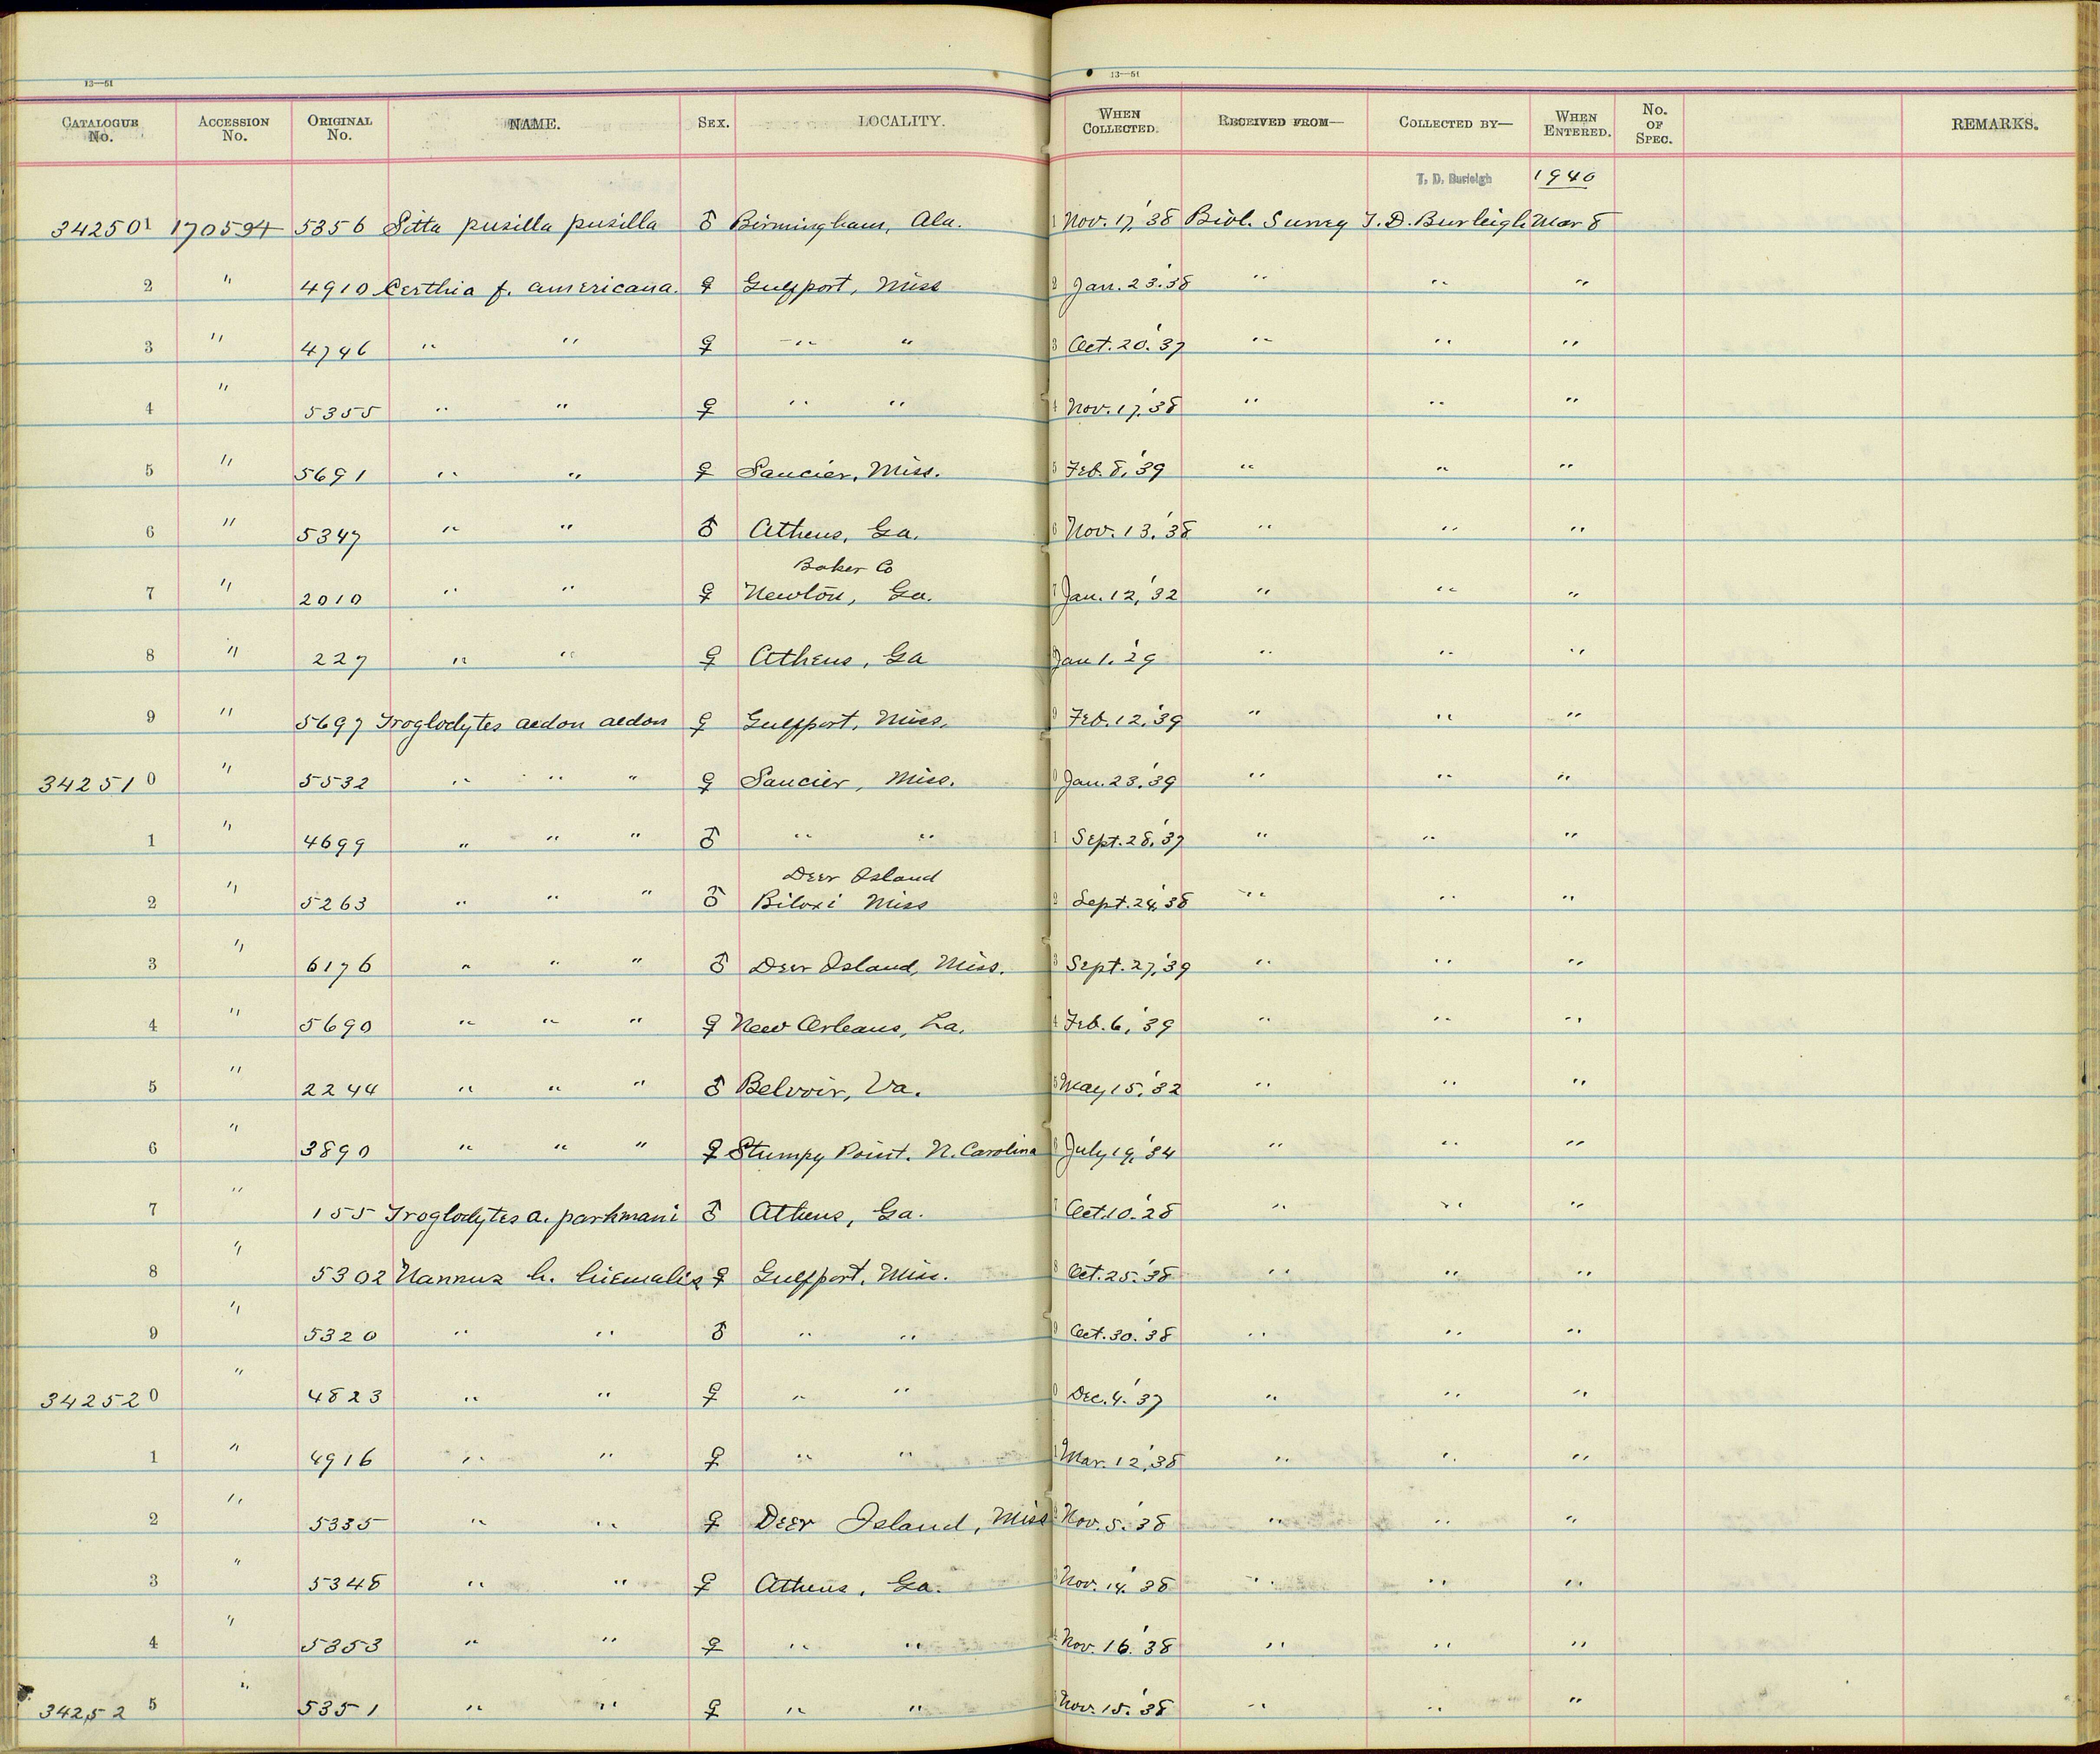 13—51 13—51
CATALOGUE No. ACCESSION No. ORIGINAL No. NAME. SEX. LOCALITY. WHEN COLLECTED. RECEIVED FROM— COLLECTED BY— WHEN ENTERED. No. OF SPEC. REMARKS.
T. D. Burleigh 1940
342501 170594 5356 Sitta pusilla pusilla ♂ Birmingham, Ala. Nov. 17, '38 Biol. Survey T. D. Burleigh Mar 8
2 " 4910 Certhia f. americana. ♀ Gulfport, Miss Jan. 23. '38 " " "
3 " 4746 " " ♀ " " Oct. 20. '37 " " "
4 " 5355 " " ♀ " " Nov. 17, '38 " " "
5 " 5691 " " ♀ Saucier, Miss. Feb. 8, '39 " " "
6 " 5347 " " ♂ Athens, Ga. Nov. 13. '38 " " "
Baker Co
7 " 2010 " " ♀ Newton, Ga. Jan. 12, '32 " " "
8 " 227 " " ♀ Athens, Ga Jan 1. '29 " " "
9 " 5697 Troglodytes aedon aedon ♀ Gulfport, Miss. Feb. 12, '39 " " "
342510 " 5532 " " " ♀ Saucier, Miss. Jan. 23, '39 " " "
1 " 4699 " " " ♂ " " Sept. 28, '37 " " "
Deer Island
2 " 5263 " " " ♂ Biloxi Miss Sept. 24, '38 " " "
3 " 6176 " " " ♂ Deer Island, Miss. Sept. 27, '39 " " "
4 " 5690 " " " ♀ New Orleans, La. Feb. 6, '39 " " "
5 " 2244 " " " ♂ Belvoir, Va. May 15, '32 " " "
6 " 3890 " " " ♀ Stumpy Point. N. Carolina July 19, '34 " " "
7 " 155 Troglodytes a. parkmani ♂ Athens, Ga. Oct 10. '28 " " "
8 " 5302 Nannus h. hiemalis ♀ Gulfport, Miss. Oct. 25. '38 " " "
9 " 5320 " " ♂ " " Oct. 30. '38 " " "
342520 " 4823 " " ♀ " " Dec. 4. '37 " " "
1 " 4916 " " ♀ " " Mar. 12, '38 " " "
2 " 5335 " " ♀ Deer Island, Miss Nov. 5. '38 " " "
3 " 5348 " " ♀ Athens, Ga. Nov. 14. '38 " " "
4 " 5353 " " ♀ " " Nov. 16. '38 " " "
342525 " 5351 " " ♀ " " Nov. 15. '38 " " "